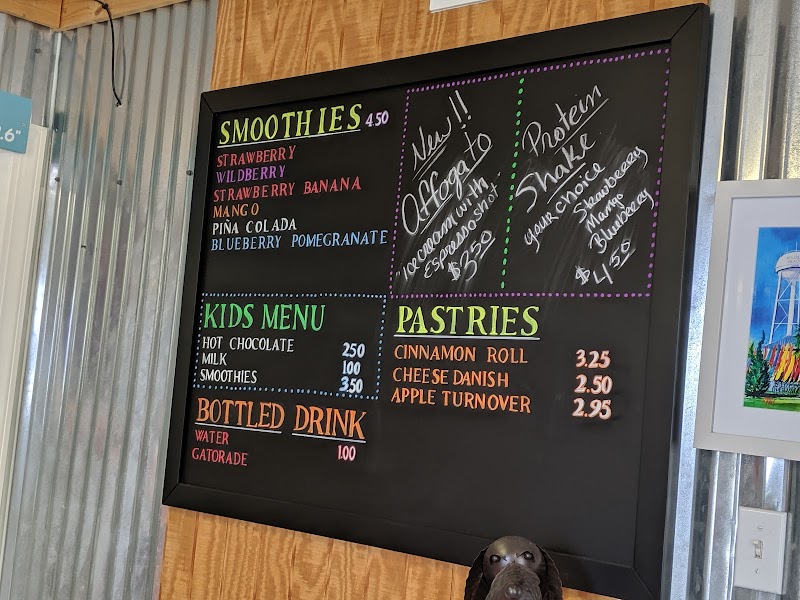 .6"
SMOOTHIES 4.50
STRAWBERRY
WILDBERRY
STRAWBERRY BANANA
MANGO
PIÑA COLADA
BLUEBERRY POMEGRANATE
New!!
Affogato
icecream with
Espresso shot
$3.50
Protein
Shake
your choice
Strawberry
Mango
Blueberry
$4.50
KIDS MENU
HOT CHOCOLATE 250
MILK 100
SMOOTHIES 350
BOTTLED DRINK
WATER 1.00
GATORADE
PASTRIES
CINNAMON ROLL 3.25
CHEESE DANISH 2.50
APPLE TURNOVER 2.95